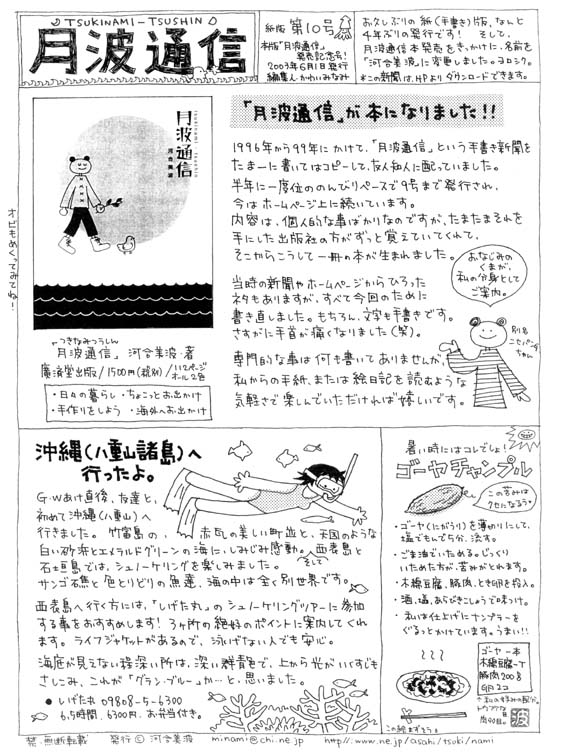 TSUKINAMI-TSUSHIN
月波通信
紙版 第10号
本版「月波通信」
発売記念号!
2003年6月1日発行
編集人 かわいみなみ
お久しぶりの紙(手書き)版、なんと
4年ぶりの発行! そして、
月波通信本発売をきっかけに、名前を
「河合美波」に変更しました。ヨロシク。
*この新聞は、HPよりダウンロードできます。
月波通信
河合美波
オビもめくってみてね!
つきなみつうしん
「月波通信」河合美波・著
廣済堂出版/1500円(税別)/112ページ
オール2色
・日々の暮らし・ちょこっとお出かけ
・手作りをしよう ・海外へお出かけ
「月波通信」が本になりました!!
1996年から99年にかけて、「月波通信」という手書き新聞を
たまーに書いてはコピーして、友人知人に配っていました。
半年に一度位ののんびりペースで9号まで発行され、
今はホームページ上に続いています。
内容は、個人的な事ばかりなのですが、たまたまそれを
手にした出版社の方がずっと覚えていてくれて、
そこからこうして一冊の本が生まれました。
当時の新聞やホームページからひろった
ネタもありますが、すべて今回のために
書き直しました。もちろん、文字も手書きです。
さすがに手首が痛くなりました(笑)。
専門的な事は何も書いてありませんが、
私からの手紙、または絵日記を読むような
気軽さで楽しんでいただければ嬉しいです。
おなじみの
くまが、
私の分身として
ご案内。
別名
ニセパンダ
ちゃん
沖縄(八重山諸島)へ
行ったよ。
G・Wあけ直後、友達と、
初めて沖縄(八重山)へ
行きました。竹富島の、赤瓦の美しい町並と、天国のような
白い砂浜とエメラルドグリーンの海に、しみじみ感動。そして西表島と
石垣島では、シュノーケリングを楽しみました。
サンゴ礁と色とりどりの魚達、海の中は全く別世界です。
西表島へ行く方には、「しげた丸」のシュノーケリングツアーに参加
する事をおすすめします! 3ヶ所の絶好のポイントに案内してくれ
ます。ライフジャケットがあるので、泳げない人でも安心。
海底が見えない程深い所は、深い群青色で、上から光がいくすじも
さしこみ、これが「グラン・ブルー」か…と思いました。
● しげた丸 09808-5-6300
6.5時間、6300円、お弁当付き。
暑い時にはコレでしょ!
ゴーヤチャンプル
この苦みは
クセになるよう!
・ゴーヤ(にがうり)を薄切りにして、
塩でもんでちらい、流す。
・ごま油でいためる。じっくり
いためた方が、苦みがとれます。
・木綿豆腐、豚肉、とき卵を投入。
・酒、塩、あらびきこしょうで味つけ。
・私は仕上げにナンプラーを
ぐるっとかけています。うまい!!
ゴーヤ一本
木綿豆腐一丁
豚肉200g
卵2コ
波
この絵まずそう。
禁・無断転載 発行 © 河合美波 minami@chi.ne.jp http://www.ne.jp/asahi/tsuki/nami